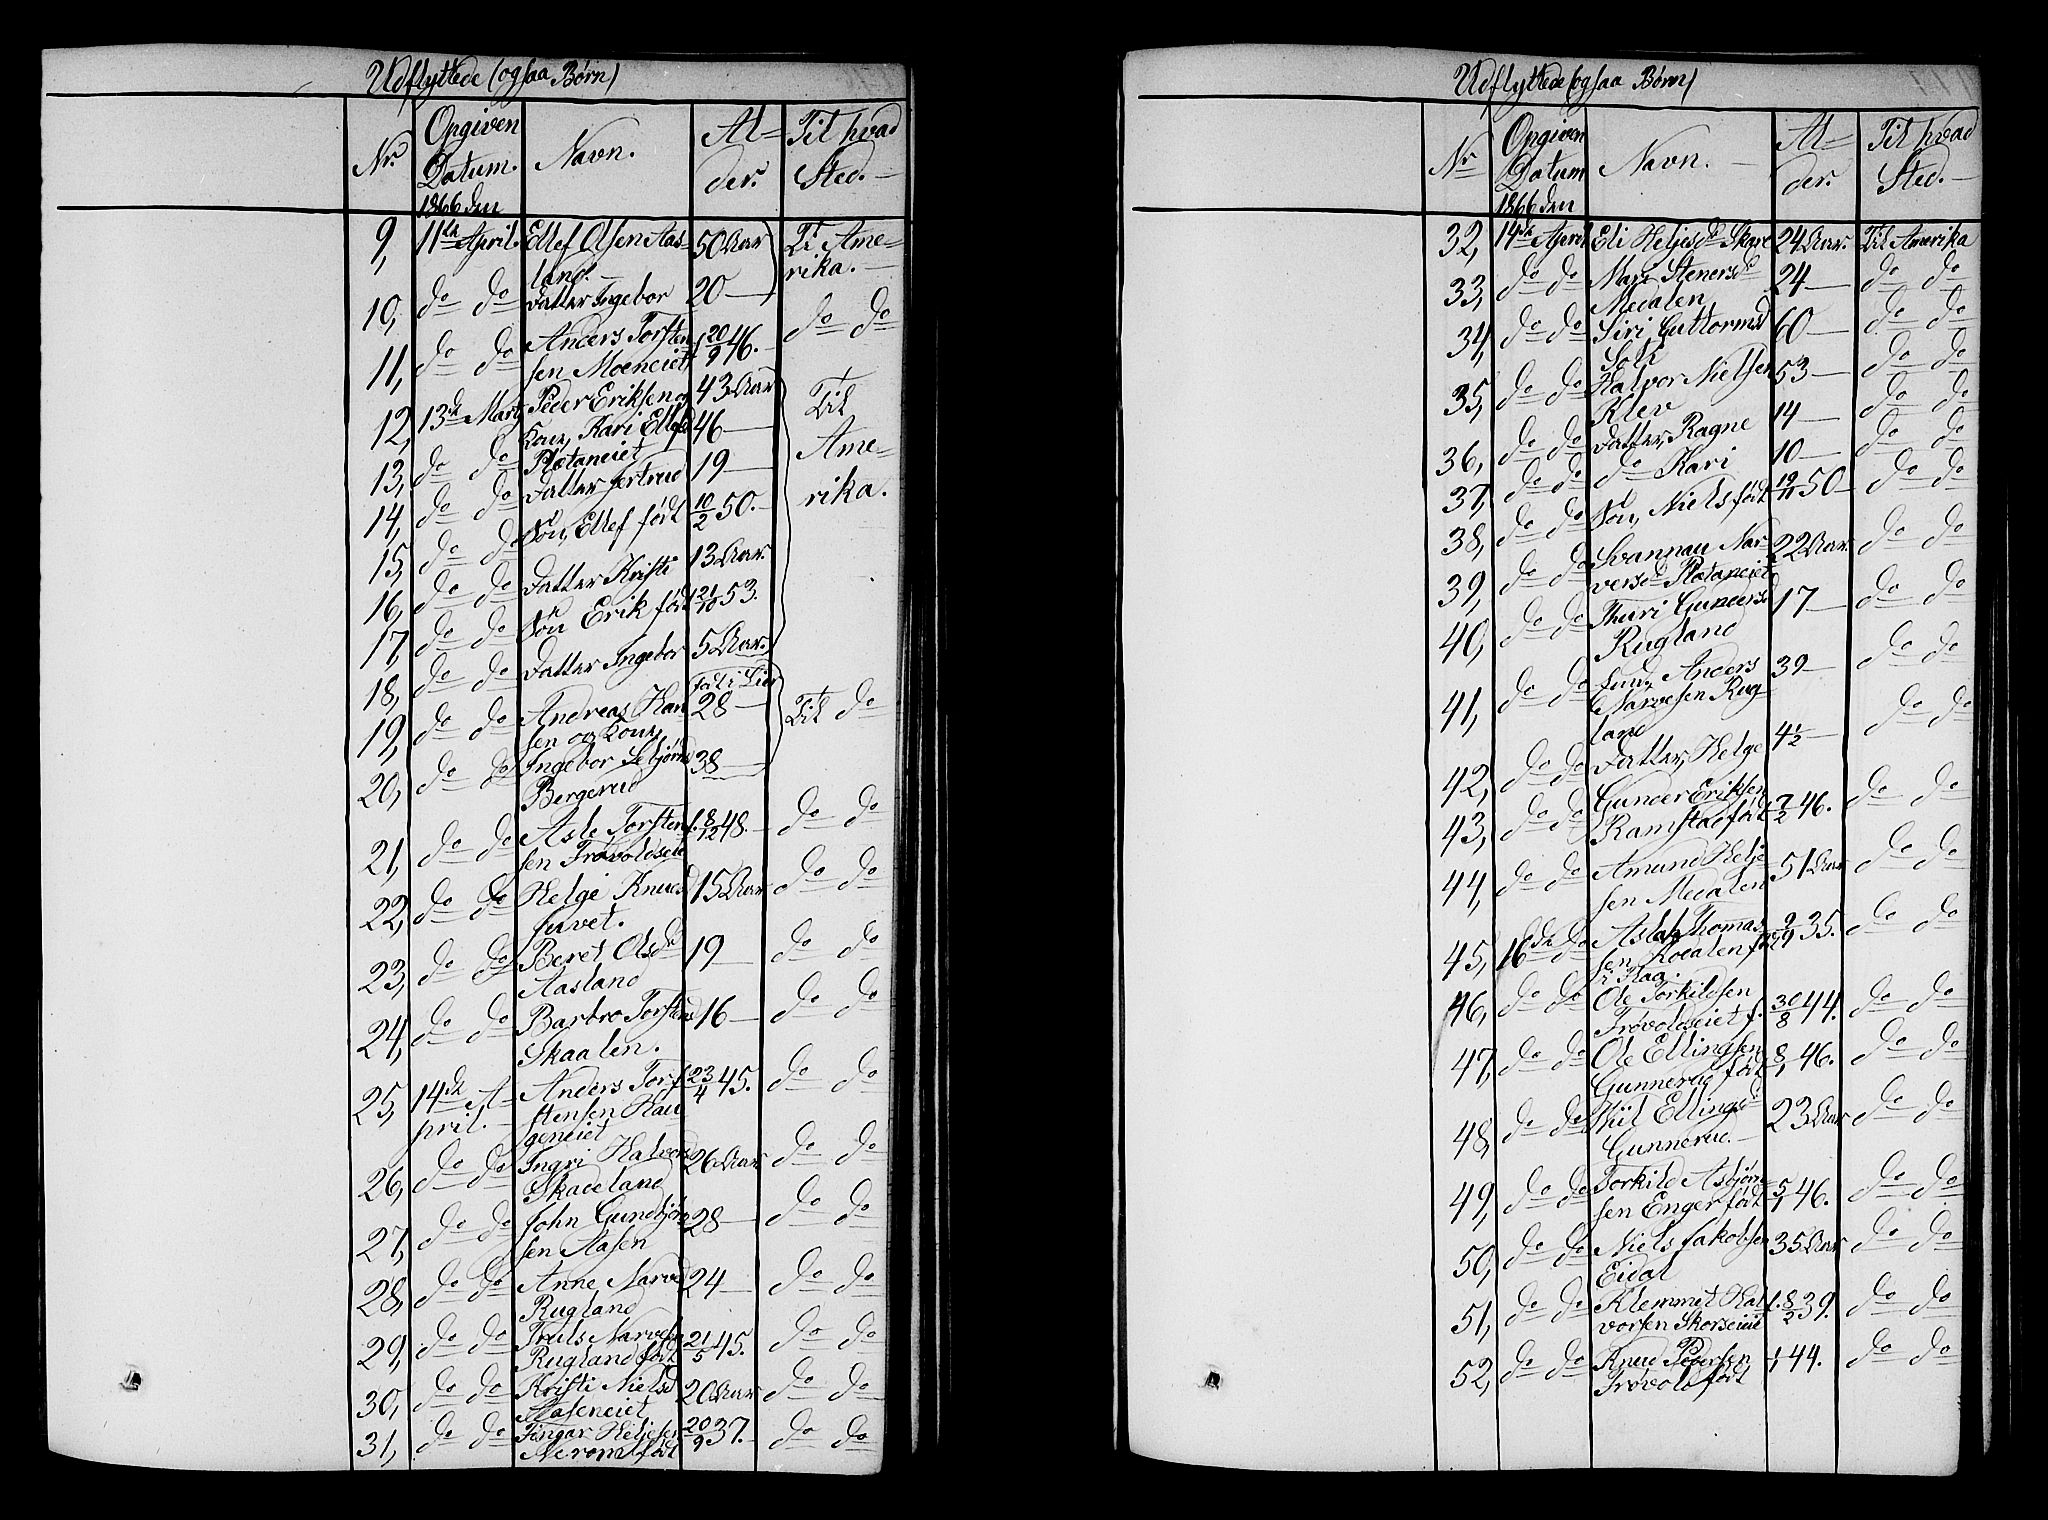 Udflyttede (ogsaa Børn)
Nr. Opgiven Datum. Navn. Al= der. Til hvad Sted.
1866 den
9, 11te April. Ellef Olsen Aas= 50 Aar Til Ame=
land. rika.
10, do do Datter Ingebor 20
11, do do Anders Torsten f 20/9 46. do do
sen Moeneiet
12, 13de Marts Peder Eriksen og 43 Aar Til
Kone, Kari Ellefsd 46 Ame=
13, do do Pletaneiet rika.
14, do do Datter Gertrud 19
15, do do Søn, Ellef født 10/2 50.
16, do do Datter Kristi 13 Aar.
17, do do Søn Erik født 21/10 53.
18, do do Datter Ingebor 5 Aar.
født i Lier
19, do do Andreas Han 28 Til do
sen og Kone,
20, do do Ingebor Sebjørnsd 38
Bergerud
21, do do Asle Torsten f. 8/12 48. do do
sen Trøvoldseie
22, do do Helge Knuds 15 Aar do do
Juvet.
23, do do Beret Olsdr 19 do do
Aasland
24, do do Barbro Torstensd 16 do do
Skaalen.
25, 14de A= Anders Tor f 23/4 45. do do
pril. stensen Hau
geneiet
26, do do Ingri Halvors 26 Aar do do
Skadeland
27, do do John Gundbjørn 28 do do
sen Aasen
28, do do Anne Narved 24 do do
Rugland
29, do do Truls Narvesen 21/5 45. do do
Rugland født
30, do do Kristi Nielsd 20 Aar do do
Aaseneiet
31, do do Fingar Heljesen 20/9 37. do do
Nerom født
Udflyttede (ogsaa Børn)
Nr Opgiven Datum Navn. Al= der. Til hvad Sted.
1866 den
32, 14de April Eli Heljesdr Skare 24 Aar. Til Amerika
33, do do Mari Stenersdr 24 do do
Medalen
34, do do Siri Guttormsd 60 do do
35, do do Halvor Nielsen 53 do do
Klev
36, do do Datter, Ragne 14 do do
37, do do do Kari 10 do do
38, do do Søn, Niels født 19/11 50 do do
39, do do Svannau Nar= 22 Aar. do do
versd Pletaneiet
40, do do Thuri Gundersd 17 do do
Rugland
41, do do Anders 39 do do
Narvesen Rug
land
42, do do Datter, Helge 4 1/2 do do
43, do do Gunder Eriksen do do
Ramstad født 7/2 46.
44, do do Amund Helje 51 Aar do do
sen Medalen
45, 16de do Aslak Thomas= 9/9 35. do do
sen Rodalen
46, do do Ole Torkildsen 30/8 44. do do
Trøvoldseiet f.
47, do do Ole Ellingsen 8/1 46. do do
Gunnerud født
48, do do Kiil Ellingsd 23 Aar do do
Gunnerud.
49, do do Torkild Asbjørn= 5/1 46. do do
sen Enger født
50, do do Niels Jakobsen 35 Aar do do
Eidal
51, do do Klemmet Hal f. 8/2 39. do do
vorsen Skorseiiie
52, do do Knud Pedersen 1/1 44. do do
Trøvold født